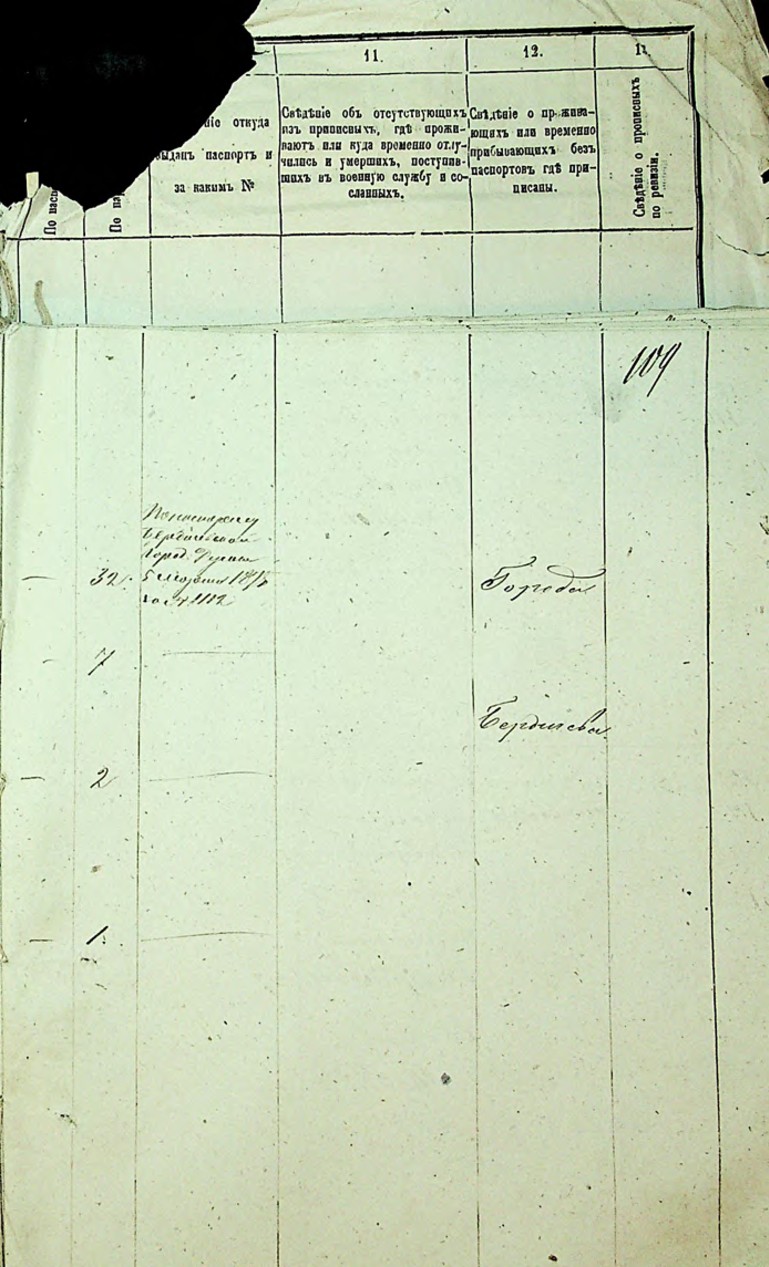 11.
12.
откуда
выданъ паспортъ и
за какимъ №
Свѣдѣніе объ отсутствующихъ
изъ приписныхъ, гдѣ прожи-
ваютъ или куда временно отлу-
чились и умершихъ, поступив-
шихъ въ военную службу и со-
сланныхъ.
Свѣдѣніе о прожива-
ющихъ или временно
прибывающихъ безъ
паспортовъ гдѣ при-
писаны.
Свѣдѣніе о прописныхъ
по ревизіи.
109
Бердичевской
Город.
— 32.
Города
- 7
Бердичева
— 2
— 1.